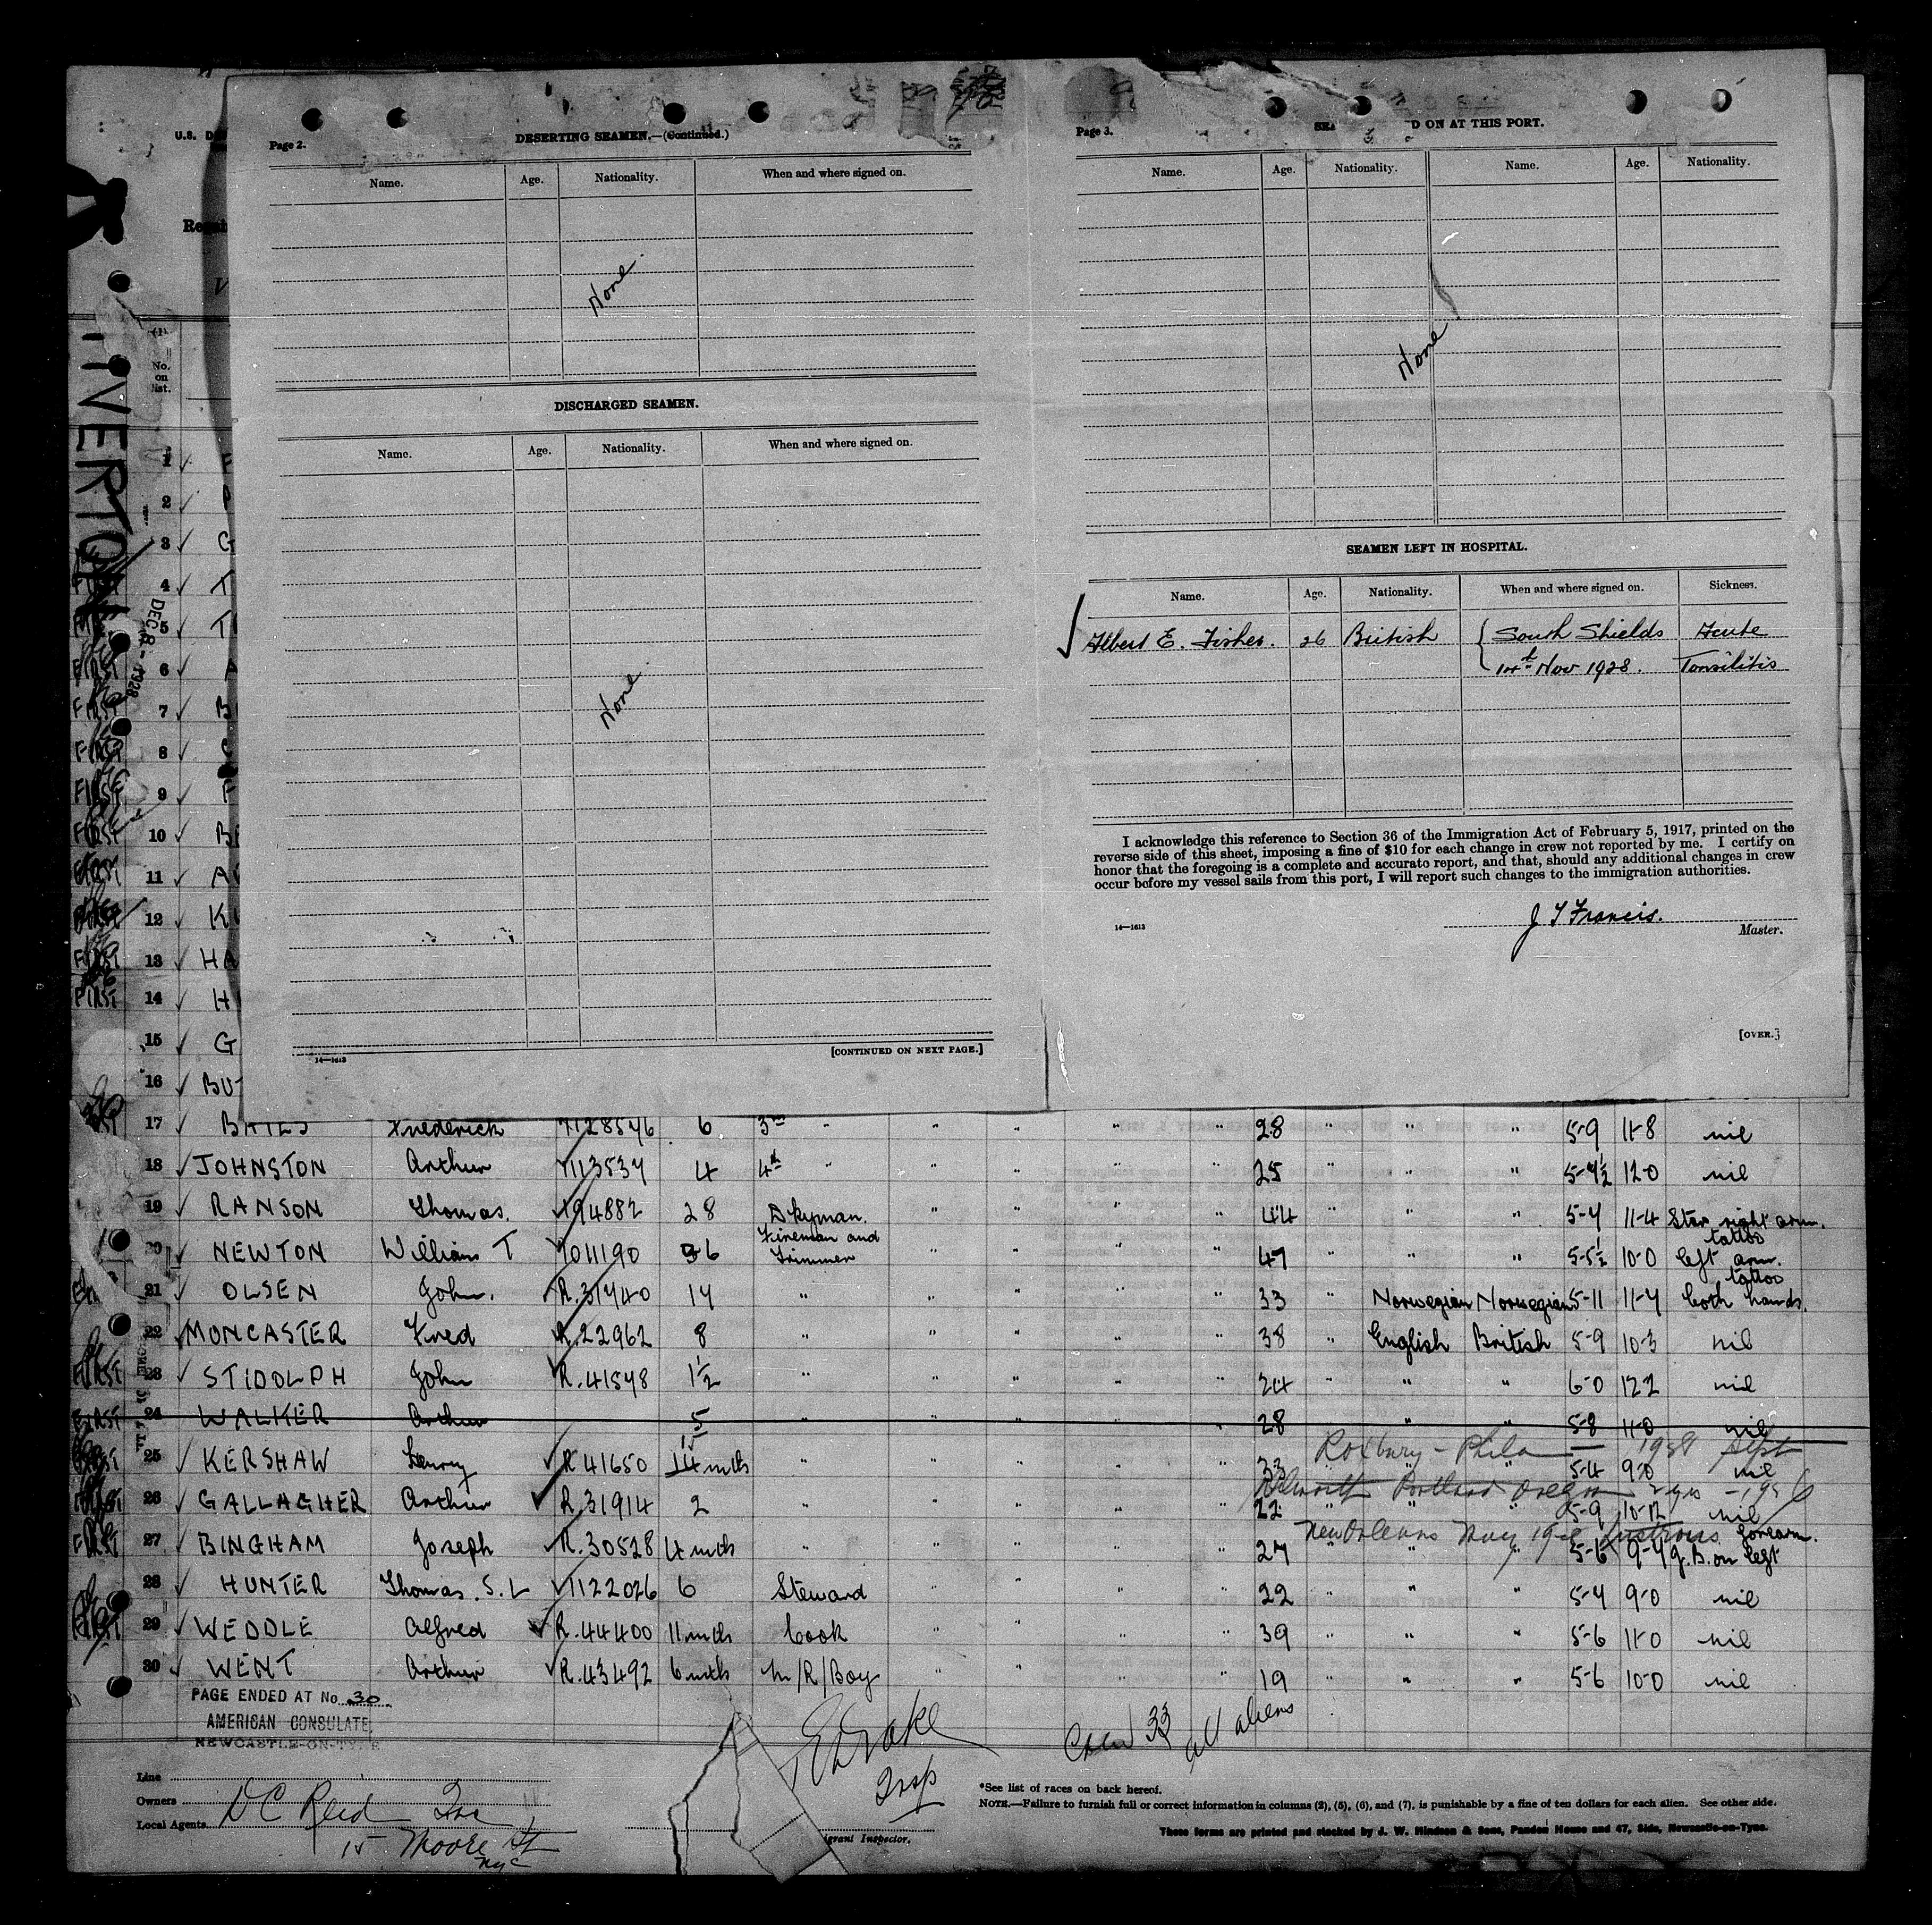 U.S. D
Page 2.
DESERTING SEAMEN.—(Continued.)
Name. Age. Nationality. When and where signed on.
None
DISCHARGED SEAMEN.
Name. Age. Nationality. When and where signed on.
None
14—1613
[CONTINUED ON NEXT PAGE.]
Page 3.
D ON AT THIS PORT.
Name. Age. Nationality. Name. Age. Nationality.
None
SEAMEN LEFT IN HOSPITAL.
Name. Age. Nationality. When and where signed on. Sickness.
Albert E. Fisher. 26 British South Shields Acute
14th Nov 1928. Tonsilitis
I acknowledge this reference to Section 36 of the Immigration Act of February 5, 1917, printed on the
reverse side of this sheet, imposing a fine of $10 for each change in crew not reported by me. I certify on
honor that the foregoing is a complete and accurate report, and that, should any additional changes in crew
occur before my vessel sails from this port, I will report such changes to the immigration authorities.
J T Francis.
14—1613
Master.
[OVER.]
TIVERTON
DEC 8 - 1928
(1)
No. on list.
1
2 P
3 G
4 T
5
6 A
7 B
8
9 F
10 B
11 A
12 K
13 HA
14 H
15 G
16 BU
17 Frederick 1128546 6 3rd " " " " " 28 " " " 5-9 11-8 nil
18 JOHNSTON Arthur 1113537 4 4th " " " " " 25 " " " 5-4½ 12-0 nil
19 RANSON Thomas. 794882 28 Dkyman. " " " " 44 " " " 5-4 11-4 Star right arm.
20 NEWTON William T 1011190 36 Fireman and Trimmer " " " " 47 " " " 5-5½ 10-0 tattoo left arm.
21 OLSEN John. R.31440 14 " " " " " 33 " Norwegian Norwegian 5-11 11-4 tattoo both hands.
22 MONCASTER Fred R.22962 8 " " " " " 38 " English British 5-9 10-3 nil
23 STIDOLPH John R.41548 1½ " " " " " 24 " " " 6-0 12-2 nil
24 WALKER Arthur 5 " " " " " 28 " " " 5-8 11-0 nil
Roxbury - Phila - 1928 Sept
25 KERSHAW Henry R.41650 14 mths 15 " " " " " 33 " " " 5-4 9-0 nil
Portland Oregon 2 yrs - 1926
26 GALLAGHER Arthur R.31914 2 " " " " " 22 " " " 5-9 10-12 nil
New Orleans
27 BINGHAM Joseph R.30528 4 mths " " " " " 27 " " " 5-6 9-4 J.B. on left forearm.
28 HUNTER Thomas. S. L 1122026 6 Steward " " " " 22 " " " 5-4 9-0 nil
29 WEDDLE Alfred R.44400 11 mths Cook " " " " 39 " " " 5-6 11-0 nil
30 WENT Arthur R.43492 6 mths M/R/Boy " " " " 19 " " " 5-6 10-0 nil
PAGE ENDED AT No. 30
AMERICAN CONSULATE
NEWCASTLE-ON-TYNE
Crew 33 all aliens
Insp
Line
Owners
Local Agents
DC Reid Inc
15 Moore St
NYC
grant Inspector.
*See list of races on back hereof.
NOTE.—Failure to furnish full or correct information in columns (2), (5), (6), and (7), is punishable by a fine of ten dollars for each alien. See other side.
These forms are printed and stocked by J. W. Hindson & Sons, Pandon House and 47, Side, Newcastle-on-Tyne.